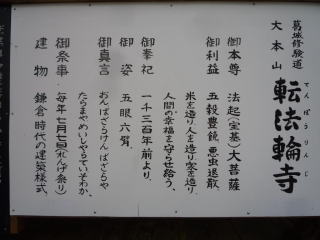 葛城修験道
大本山
転法輪寺
てんぽうりんじ
御本尊 法起(宝基)大菩薩
御利益 五穀豊饒、悪虫退散、
米を造り人を造り家を造り
人間の幸福を守らせ給う、
御奉祀 一千三百年前より、
御姿 五眼六臂、
御真言 おんばざらけんばざらや
たらまやめいしやらていそわか、
御祭事 毎年七月七日(れんげ祭り)
建物 鎌倉時代の建築様式、